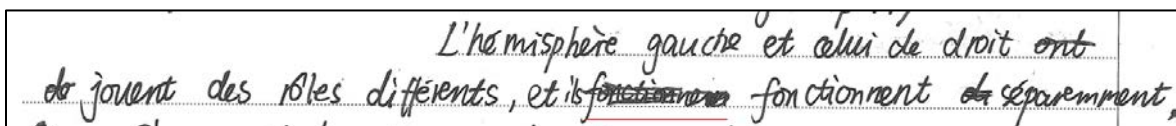 L'hémisphère gauche et celui de droit ont
de jouent des rôles différents, et ils fonctionnen fonctionnent de séparemment,